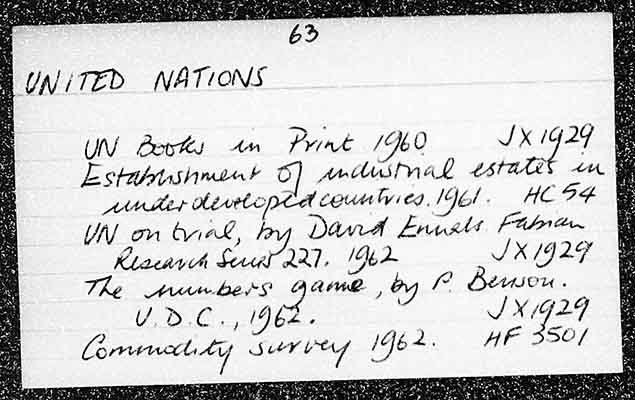 63
UNITED NATIONS
UN Books in Print 1960 JX1929
Establishment of industrial estates in
underdeveloped countries. 1961. HC 54
UN on trial, by David Ennals. Fabian
Research Series 227. 1962 JX1929
The numbers game, by P. Benson.
U.D.C., 1962. JX1929
Commodity survey 1962. HF 3501